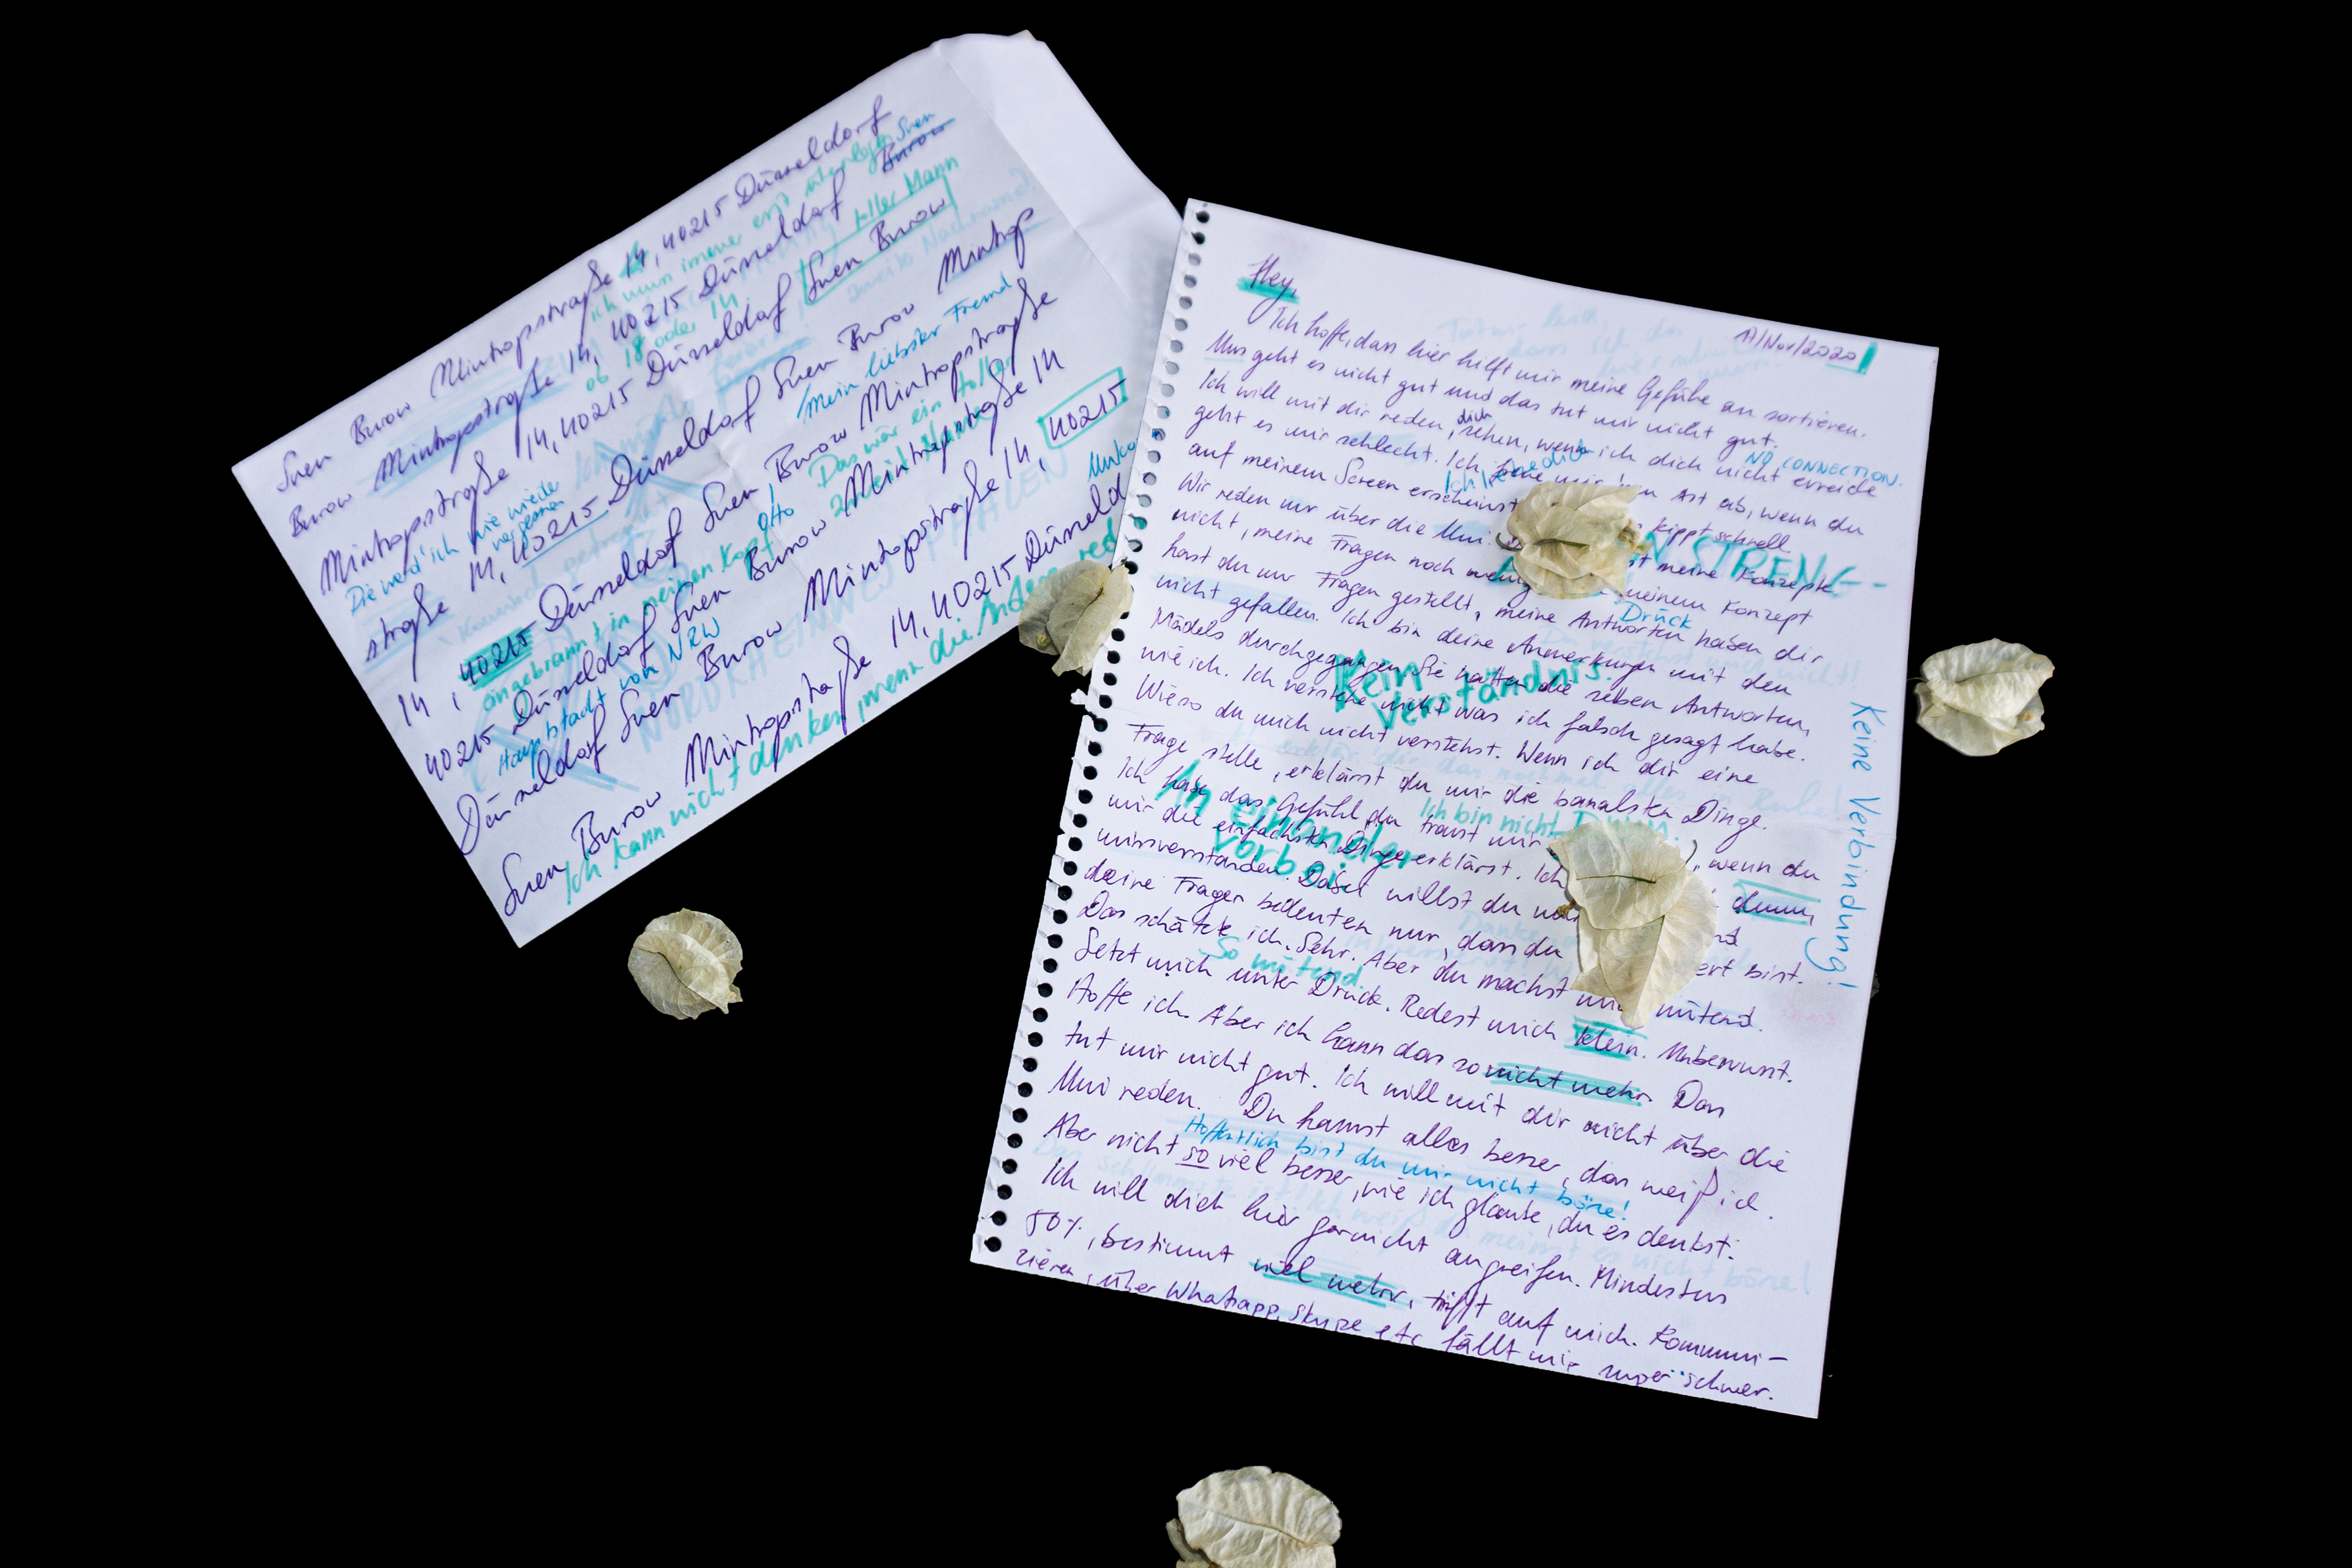 Sven Burow Mintropstraße 14, 40215 Düsseldorf
ich muss immer erst überlegen Sven
Burow Mintropstraße 14, 40215 Düsseldorf Burow
ob 18 oder 14
toller Mann
Mintropstraße 14, 40215 Düsseldorf Sven Burow
Die werd' ich nie wieder
vergessen
straße 14, 40215 Düsseldorf Sven Burow Mintrop
Mein liebster Freund
14, 40215 Düsseldorf Sven Burow Mintropstraße
eingebrannt in meinen Kopf
Otto
Das wär ein toller
40215 Düsseldorf Sven Burow Mintropstraße 14
Hauptstadt von NRW
NORDRHEIN WESTFALEN
Düsseldorf Sven Burow Mintropstraße 14, 40215
Sven Burow Mintropstraße 14, 40215 Düsseld
Ich kann nicht denken, wenn die Anderen red
Hey,
11/Nov/2020
Ich hoffe, dass hier hilft mir meine Gefühle zu sortieren.
Uns geht es nicht gut und das tut mir nicht gut.
NO CONNECTION.
Ich will mit dir reden, dich sehen, wenn ich dich nicht erreiche
geht es mir schlecht. Ich freue mir 'nen Ast ab, wenn du
Ich liebe dich
auf meinem Screen erscheinst kippt schnell.
ANSTRENG-
Wir reden nur über die Uni. meine Konzepte
nicht, meine Fragen noch weniger meinem Konzept
Druck
hast du nur Fragen gestellt, meine Antworten haben dir
nicht gefallen. Ich bin deine Anmerkungen mit den
Mädels durchgegangen. Sie hatten die selben Antworten,
Kein
Verständnis.
wie ich. Ich verstehe nicht was ich falsch gesagt habe.
Wieso du mich nicht verstehst. Wenn ich dir eine
Frage stelle, erklärst du mir die banalsten Dinge.
An einander
vorbei
Ich bin nicht Dumm.
Ich habe das Gefühl du traust mir , wenn du
mir die einfachsten Dinge erklärst. Ich dumm,
missverstanden. Dabei willst du nur und
deine Fragen bedeuten nur, dass du ert bist.
So wütend.
Das schätze ich. Sehr. Aber du machst mich wütend.
Setzt mich unter Druck. Redest mich klein. Unbewusst.
Hoffe ich. Aber ich kann das so nicht mehr. Das
tut mir nicht gut. Ich will mit dir nicht über die
Uni reden. Du kannst alles besser, das weiß ich.
Hoffentlich bist du mir nicht böse!
Aber nicht so viel besser, wie ich glaube, du es denkst.
Ich will dich hier garnicht angreifen. Mindestens
50%, bestimmt viel mehr, trifft auf mich. Kommuni-
zieren, über Whatsapp, skype etc fällt mir super schwer.
Keine Verbindung!